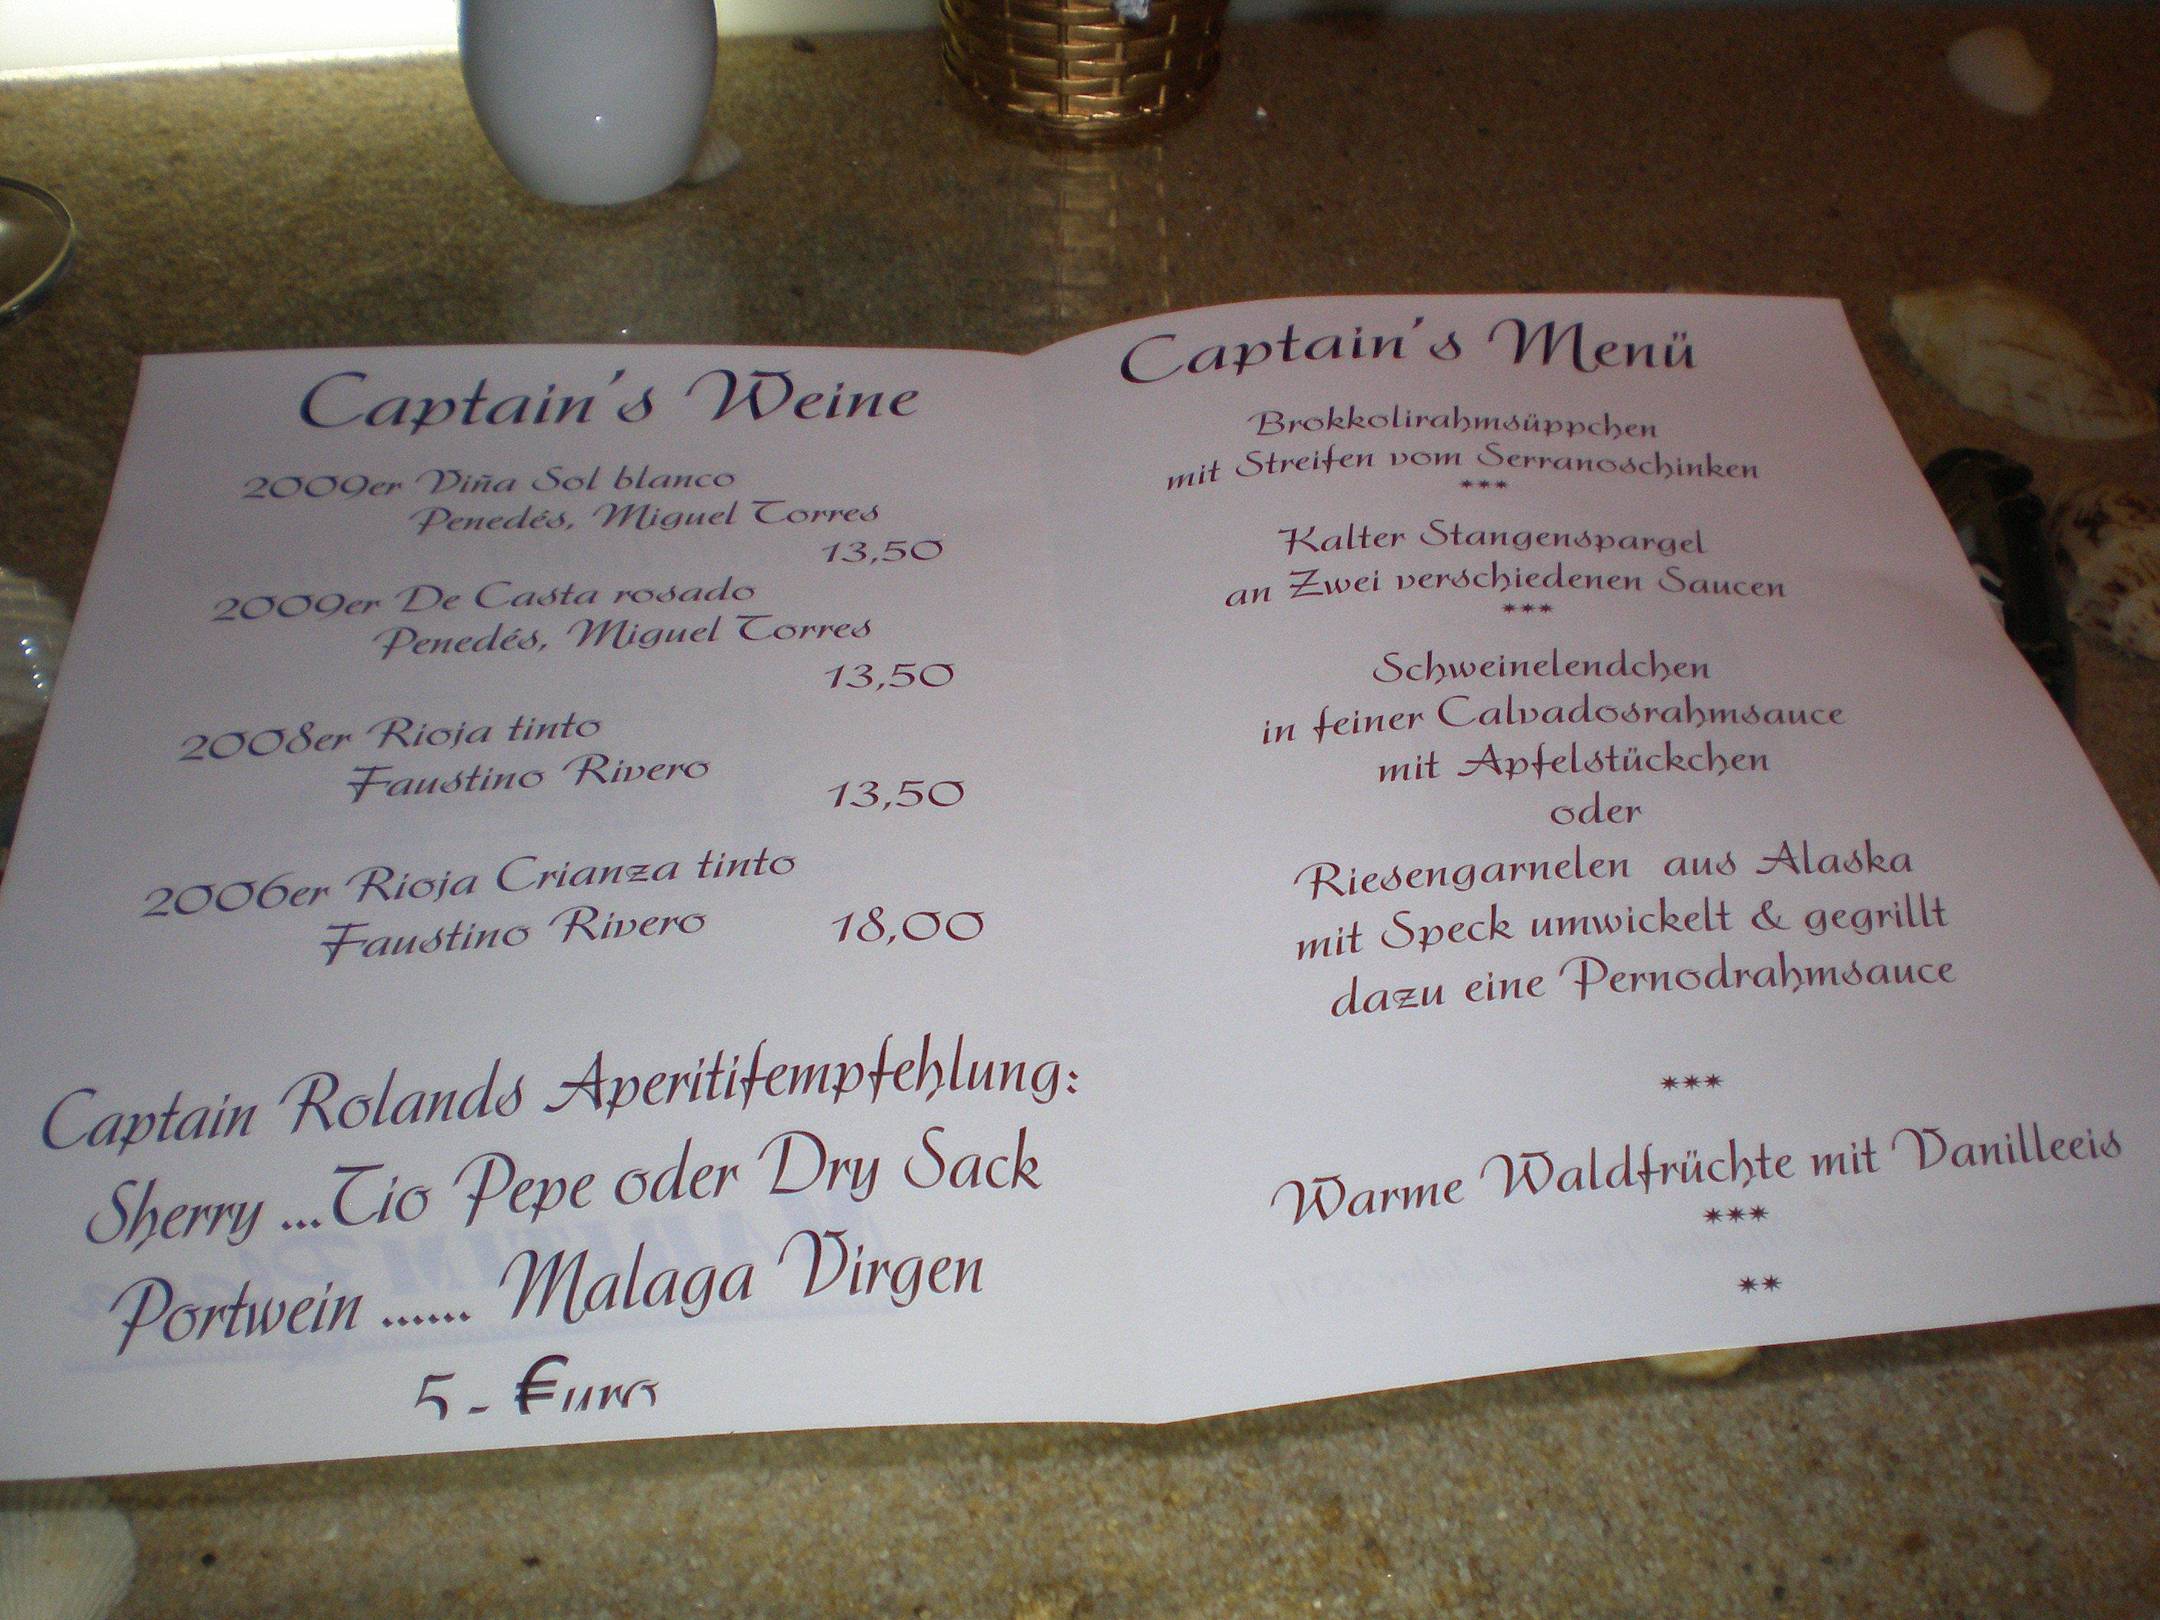 Captain's Weine
2009er Viña Sol blanco
Penedés, Miguel Torres
13,50
2009er De Casta rosado
Penedés, Miguel Torres
13,50
2008er Rioja tinto
Faustino Rivero
13,50
2006er Rioja Crianza tinto
Faustino Rivero 18,00
Captain Rolands Aperitifempfehlung:
Sherry ...Tio Pepe oder Dry Sack
Portwein ...... Malaga Virgen
5,- €uro
Captain's Menü
Brokkolirahmsüppchen
mit Streifen vom Serranoschinken
***
Kalter Stangenspargel
an Zwei verschiedenen Saucen
***
Schweinelendchen
in feiner Calvadosrahmsauce
mit Apfelstückchen
oder
Riesengarnelen aus Alaska
mit Speck umwickelt & gegrillt
dazu eine Pernodrahmsauce
***
Warme Waldfrüchte mit Vanilleeis
***
**